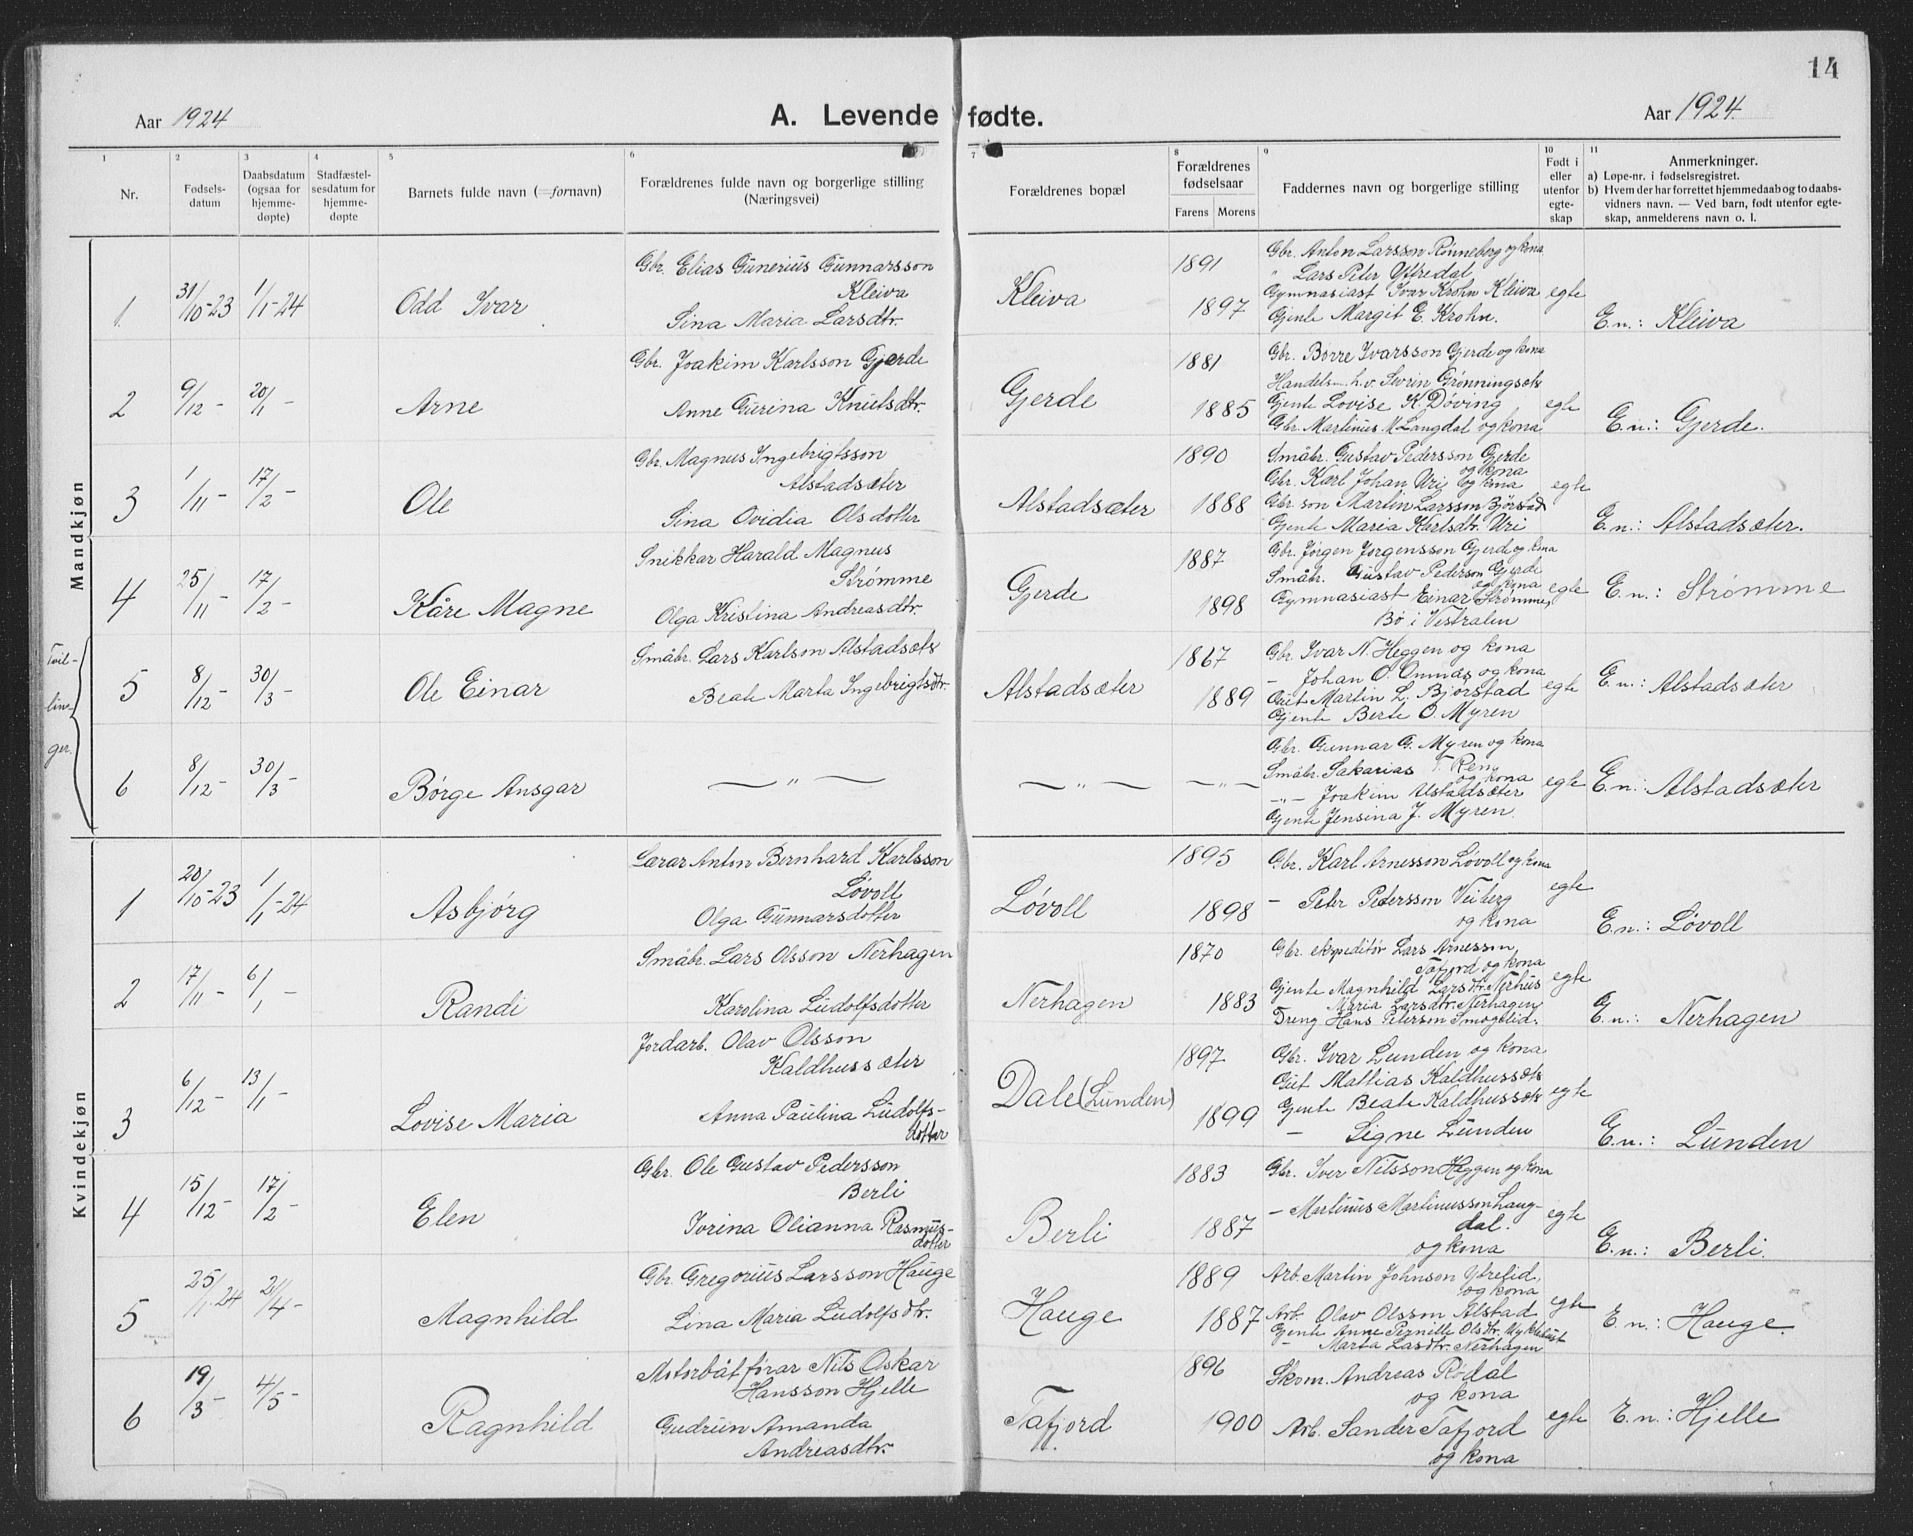 14
Aar 1924
A. Levende fødte.
Aar 1924.
1 2 3 4 5 6 7 8 9 10 11
Nr.
Fødsels-
datum
Daabsdatum
(ogsaa for
hjemme-
døpte)
Stadfæstel-
sesdatum for
hjemme-
døpte
Barnets fulde navn (= fornavn)
Forældrenes fulde navn og borgerlige stilling
(Næringsvei)
Forældrenes bopæl
Forældrenes
fødselsaar
Farens Morens
Faddernes navn og borgerlige stilling
Født i
eller
utenfor
egte-
skap
Anmerkninger.
a) Løpe-nr. i fødselsregistret.
b) Hvem der har forrettet hjemmedaab og to daabs-
vidners navn. — Ved barn, født utenfor egte-
skap, anmelderens navn o. l.
Mandkjøn
1. 31/10-23 1/1-24 Odd Ivar
Gbr. Elias Gunerius Gunnarsson
Kleiva
Sina Maria Larsdtr.
Kleiva
1891
1897
Gbr. Anton Larsson Rønneberg og kona
" Lars Peter Yttredal
Gymnasiast Ivar Krohn Kleiva
Gjente Margit E. Krohn.
egte
E.n.: Kleiva
2 9/12- 20/1- Arne
Gbr. Joakim Karlsson Gjerde
Anne Gurina Knutsdtr.
Gjerde
1881
1885
Gbr. Børre Ivarsson Gjerde og kona
Handelsm. h.v. Sivrin Grønningsæt
Gjente Lovise K. Døving
Gbr. Martinus M. Langdal og kona
egte
E.n.: Gjerde.
3 1/11- 17/2- Ole
Gbr. Magnus Ingebrigtsson
Alstadsæter
Sina Ovidia Olsdotter
Alstadsæter
1890
1888
Småbr. Gustav Pedersson Gjerde
og kona
Gbr. Karl Johan Uri og kona
Gbr. son Martin Larsson Bjørstad
Gjente Maria Karlsdtr. Uri
egte
E.n.: Alstadsæter.
4 25/11- 17/2- Kåre Magne
Snikkar Harald Magnus
Strømme
Olga Kristina Andreasdtr.
Gjerde
1887
1898
Gbr. Jørgen Jørgensson Gjerde og kona
Småbr. Gustav Pederson Gjerde
og kona
Gymnasiast Einar Strømme,
Bø i Vestralen
egte
E.n.: Strømme
Tvil-
lin-
ger.
5 8/12- 30/3- Ole Einar
Småbr. Lars Karlson Alstadsæt
Beate Marta Ingebrigtsdtr.
Alstadsæter
1867
1889
Gbr. Ivar N. Heggen og kona
- Johan O. Omnås og kona
Gut Martin L. Bjørstad
Gjente Berte O. Myren
egte
E.n.: Alstadsæter
6 8/12- 30/3- Børge Ansgar
— " —
— " —
— " —
Gbr. Gunnar G. Myren og kona
Småbr. Sakarias T. Ren
og kona
-"- Joakim Alstadsæter
Gjente Jensina J. Myren.
egte
E.n.: Alstadsæter
Kvindekjøn
1 20/10-23 1/1-24 Asbjörg
Lærar Anton Bernhard Karlsson
Løvoll
Olga Gunnarsdotter
Løvoll
1895
1898
Gbr. Karl Arnesson Løvoll og kona
- Peter Petersson Veiberg
og kona
egte
E.n.: Løvoll
2 17/11- 6/1- Randi
Småbr. Lars Olsson Nerhagen
Karolina Ludolfsdotter
Nerhagen
1870
1883
Gbr. ekspeditør Lars Arnesson,
Tafjord og kona
Gjente Magnhild Larsdtr. Nerhus
- Maria Larsdtr. Nerhagen
Dreng Hans Peterson Smogelid.
egte
E.n.: Nerhagen
3 6/12- 13/1- Lovise Maria
Jordarb. Olav Olsson
Kaldhussæter
Anna Paulina Ludolfs-
dotter
Dale (Lunden)
1897
1899
Gbr. Ivar Lunden og kona
Gut Mattias Kaldhussæt
Gjente Beate Kaldhussæt
- Signe Lunden
egte
E.n.: Lunden
4 15/12- 17/2- Elen
Gbr. Ole Gustav Pedersson
Berli
Ivrina Olianna Rasmus-
dotter
Berli
1883
1887
Gbr. Iver Nilsson Heggen og kona
- Martinus Martinusson Lang-
dal.
og kona
egte
E.n.: Berli.
5 25/1-24 21/4- Magnhild
Gbr. Gregorius Larsson Hauge
Lina Maria Ludolfsdtr.
Hauge
1889
1887
Arb. Martin Johnson Ytrelid,
og kona
Arb. Olav Olsson Alstad
Gjente Anne Pernille Olsdtr. Myklebust
- Marta Lasdtr. Nerhagen
egte
E.n.: Hauge.
6 19/3- 4/5- Ragnhild
Motorbåtførar Nils Oskar
Hansson Hjelle
Gudrun Amanda
Andreasdtr.
Tafjord
1896
1900
Skom. Andreas Rødal
og kona
Arb. Sander Tafjord
og kona
egte
E.n.: Hjelle